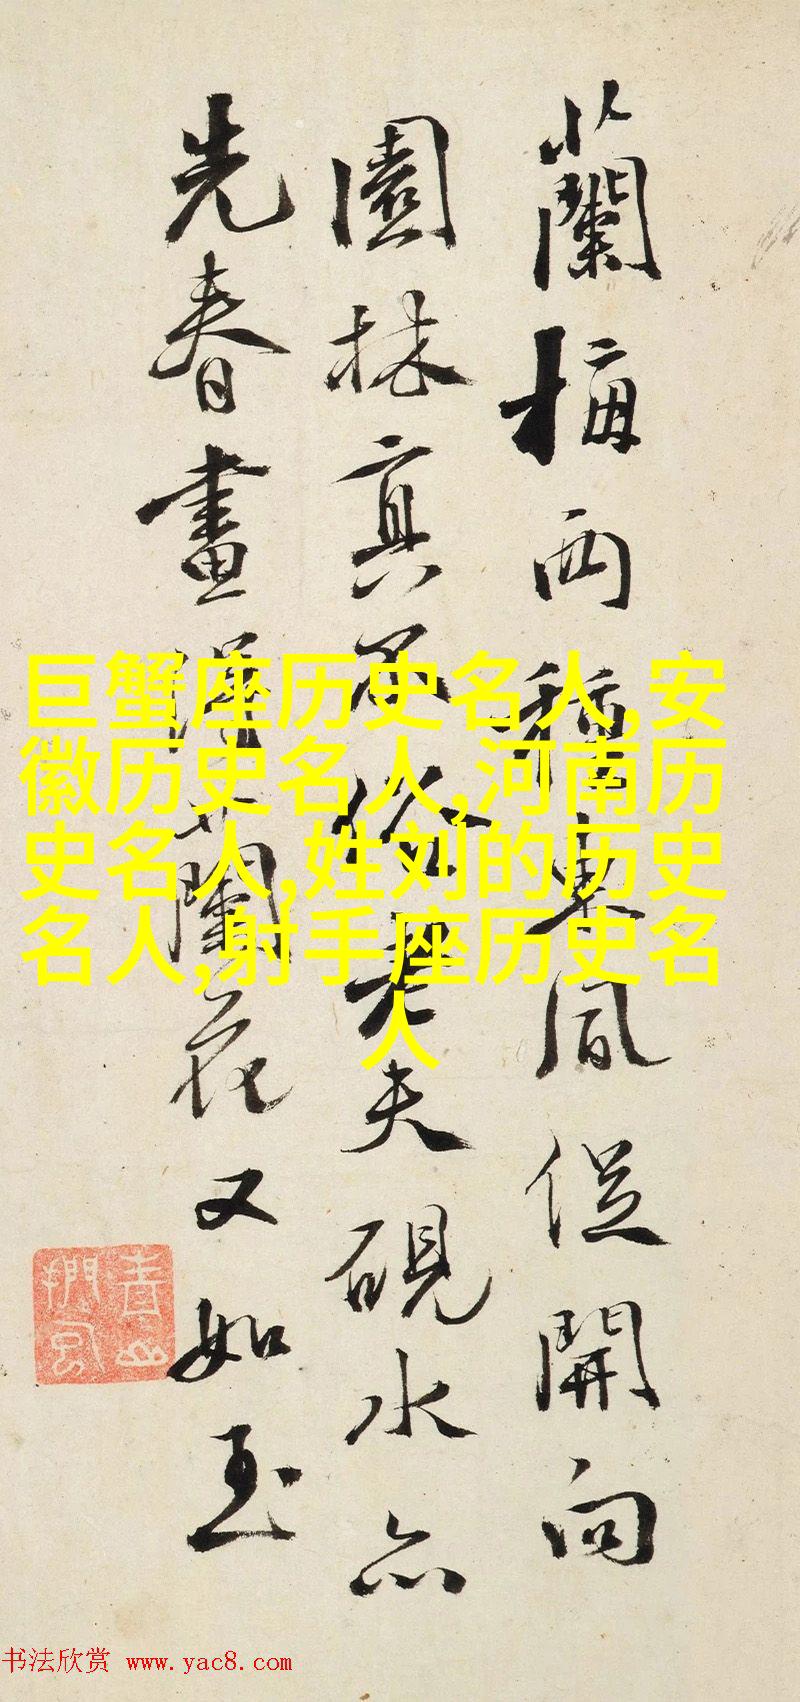 蘭梅兩種東風從開向
園林真不俗老夫硯水亦
先春畫得蘭花又如玉
巨蟹座历史名人,安
徽历史名人,河南历
史名人,姓刘的历史
名人,射手座历史名
人
书法欣赏 www.yac8.com